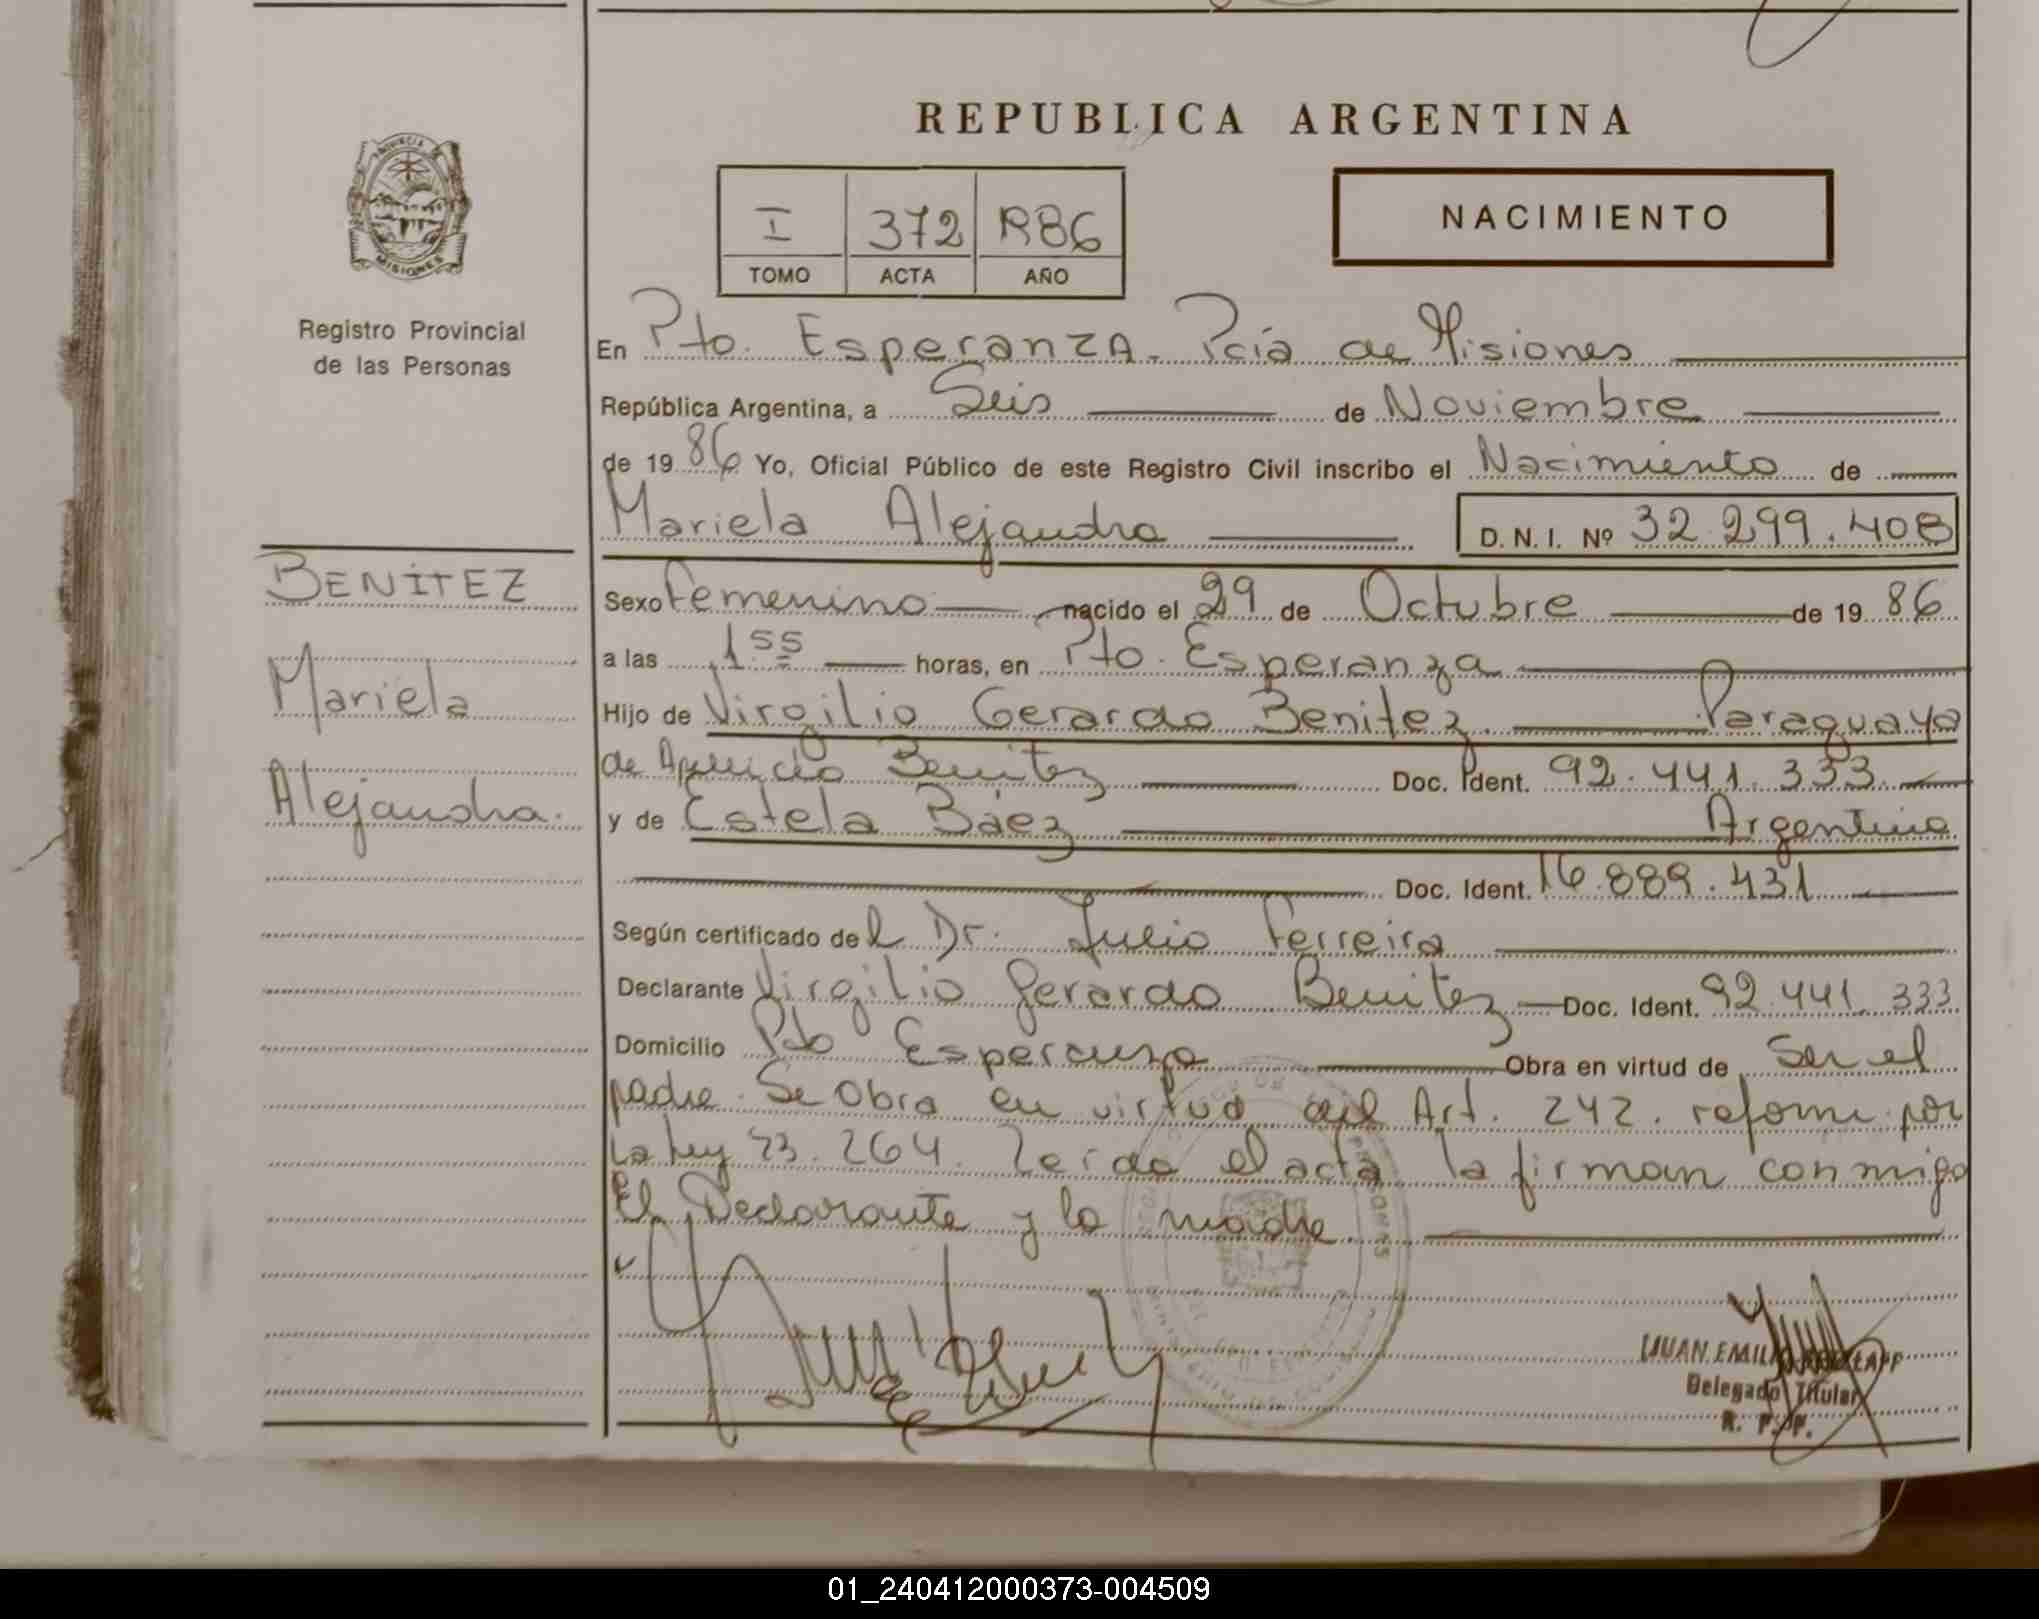 REPUBLICA ARGENTINA
PROVINCIA DE
MISIONES
Registro Provincial
de las Personas
I 372 1986
TOMO ACTA AÑO
NACIMIENTO
En Pto. Esperanza - Pcia de Misiones
República Argentina, a Seis de Noviembre
de 1986 Yo, Oficial Público de este Registro Civil inscribo el Nacimiento de
Mariela Alejandra D. N. I. Nº 32.299.408
BENÍTEZ
Mariela
Alejandra.
Sexo Femenino nacido el 29 de Octubre de 1986
a las 1 55 horas, en Pto. Esperanza
Hijo de Virgilio Gerardo Benitez Paraguayo
de Benitez Doc. Ident. 92.441.333
y de Estela Báez Argentina
Doc. Ident. 16.889.431
Según certificado del Dr. Julio Ferreira
Declarante Virgilio Gerardo Benitez Doc. Ident. 92.441.333
Domicilio Pto Esperanza Obra en virtud de Ser el
padre. Se Obra en virtud del Art. 242. reform. por
la ley 23.264. Leida el acta la firman conmigo
El Declarante y la madre.
JUAN EMILIO
Delegado Titular
R. P. P.
01_240412000373-004509